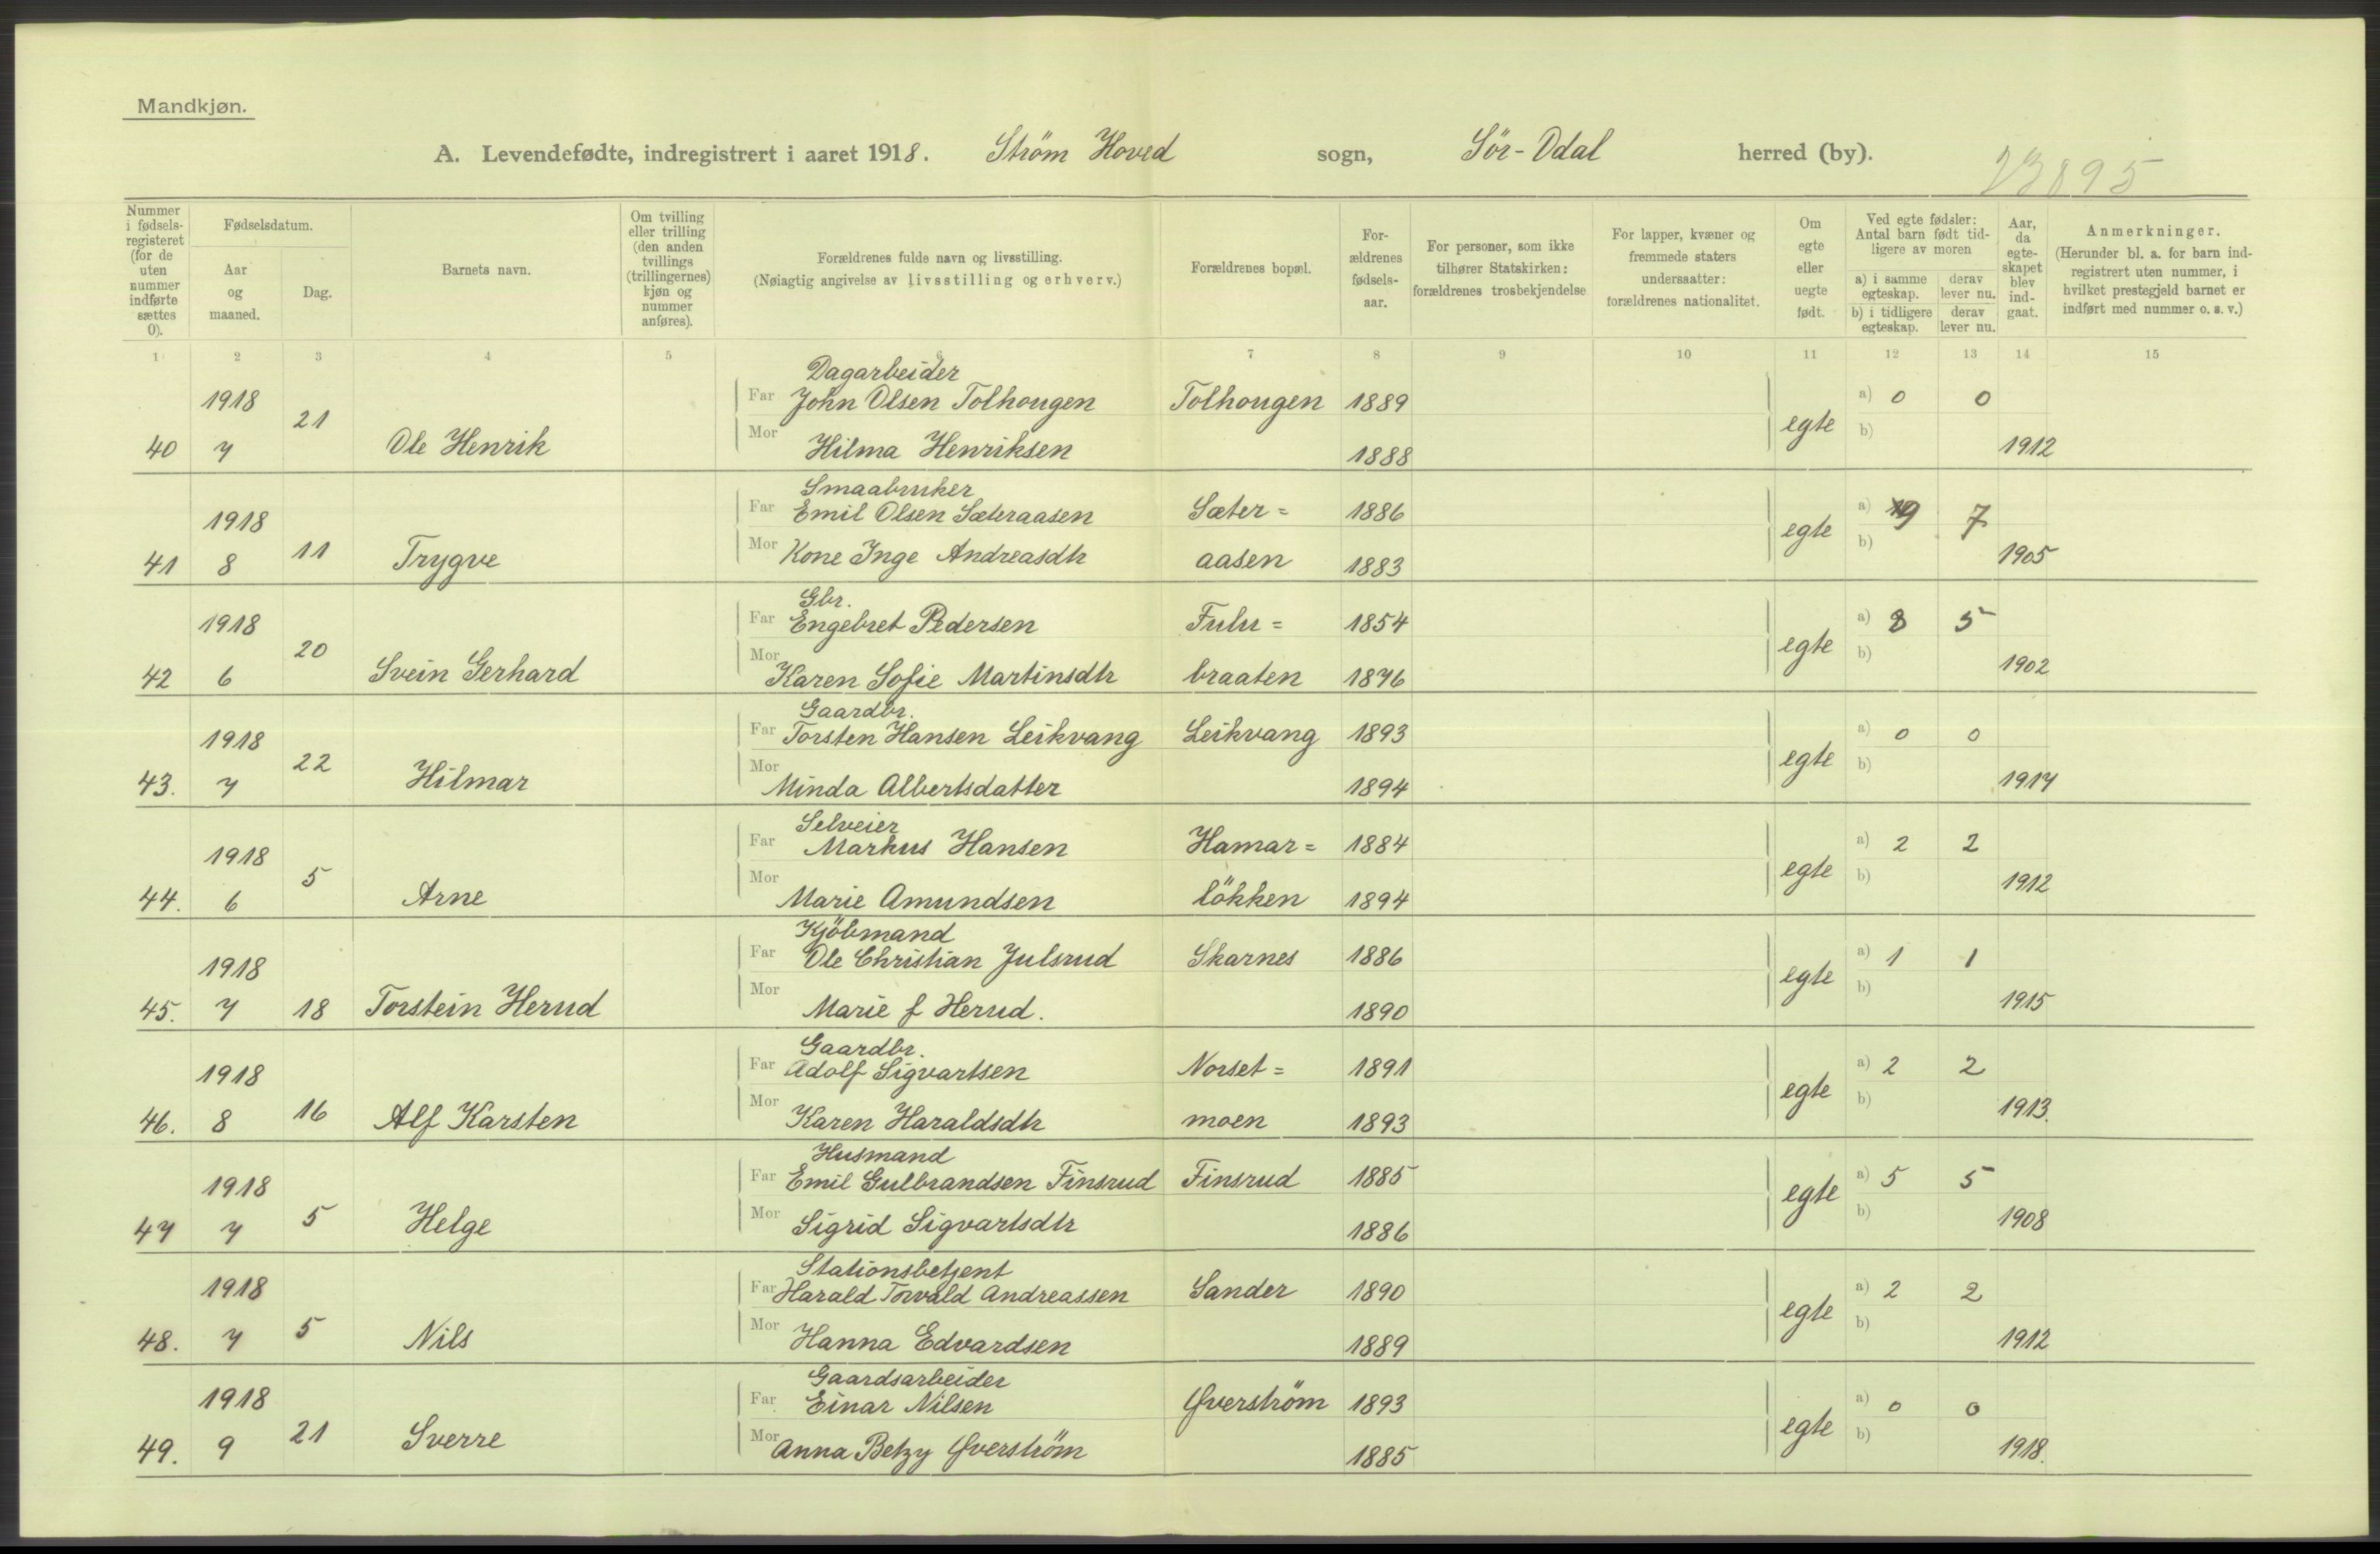 Mandkjøn.
A. Levendefødte, indregistrert i aaret 1918. Ström Hoved sogn, Sör-Odal herred (by).
23895
Nummer i fødsels-registeret (for de uten nummer indførte sættes 0).
Fødselsdatum.
Aar og maaned.
Dag.
Barnets navn.
Om tvilling eller trilling (den anden tvillings (trillingernes) kjøn og nummer anføres).
Forældrenes fulde navn og livsstilling.
(Nøiagtig angivelse av livsstilling og erhverv.)
Forældrenes bopæl.
For-ældrenes fødsels-aar.
For personer, som ikke tilhører Statskirken: forældrenes trosbekjendelse
For lapper, kvæner og fremmede staters undersaatter: forældrenes nationalitet.
Om egte eller uegte født.
Ved egte fødsler: Antal barn født tid-ligere av moren
a) i samme egteskap. derav lever nu.
b) i tidligere egteskap. derav lever nu.
Aar, da egte-skapet blev ind-gaat.
Anmerkninger.
(Herunder bl. a. for barn ind-registrert uten nummer, i hvilket prestegjeld barnet er indført med nummer o. s. v.)
1 2 3 4 5 6 7 8 9 10 11 12 13 14 15
Dagarbeider
1918 Far John Olsen Tolhougen Tolhougen 1889 a) 0 0
40 7 21 Ole Henrik Mor Hilma Henriksen 1888 egte b) 1912
Smaabruker
1918 Far Emil Olsen Sæteraasen Sæter= 1886 a) 9 7
41 8 11 Trygve Mor Kone Inge Andreasdtr aasen 1883 egte b) 1905
Gbr.
1918 Far Engebret Pedersen Fulu= 1854 a) 8 5
42 6 20 Svein Gerhard Mor Karen Sofie Martinsdtr braaten 1876 egte b) 1902
Gaardbr.
1918 Far Torsten Hansen Leikvang Leikvang 1893 a) 0 0
43. 7 22 Hilmar Mor Minda Albertsdatter 1894 egte b) 1917
Selveier
1918 Far Markus Hansen Hamar= 1884 a) 2 2
44. 6 5 Arne Mor Marie Amundsen lökken 1894 egte b) 1912
Kjöbmand
1918 Far Ole Christian Julsrud Skarnes 1886 a) 1 1
45. 7 18 Torstein Herud Mor Marie f Herud. 1890 egte b) 1915
Gaardbr.
1918 Far Adolf Sigvartsen Norset= 1891 a) 2 2
46. 8 16 Alf Karsten Mor Karen Haraldsdtr moen 1893 egte b) 1913.
Husmand
1918 Far Emil Gulbrandsen Finsrud Finsrud 1885 a) 5 5
47 7 5 Helge Mor Sigrid Sigvartsdtr 1886 egte b) 1908
Stationsbetjent
1918 Far Harald Torvald Andreassen Sander 1890 a) 2 2
48. 7 5 Nils Mor Hanna Edvardsen 1889 egte b) 1912
Gaardsarbeider
1918 Far Einar Nilsen Qverström 1893 a) 0 0
49. 9 21 Sverre Mor Anna Betzy Qverström 1885 egte b) 1918.